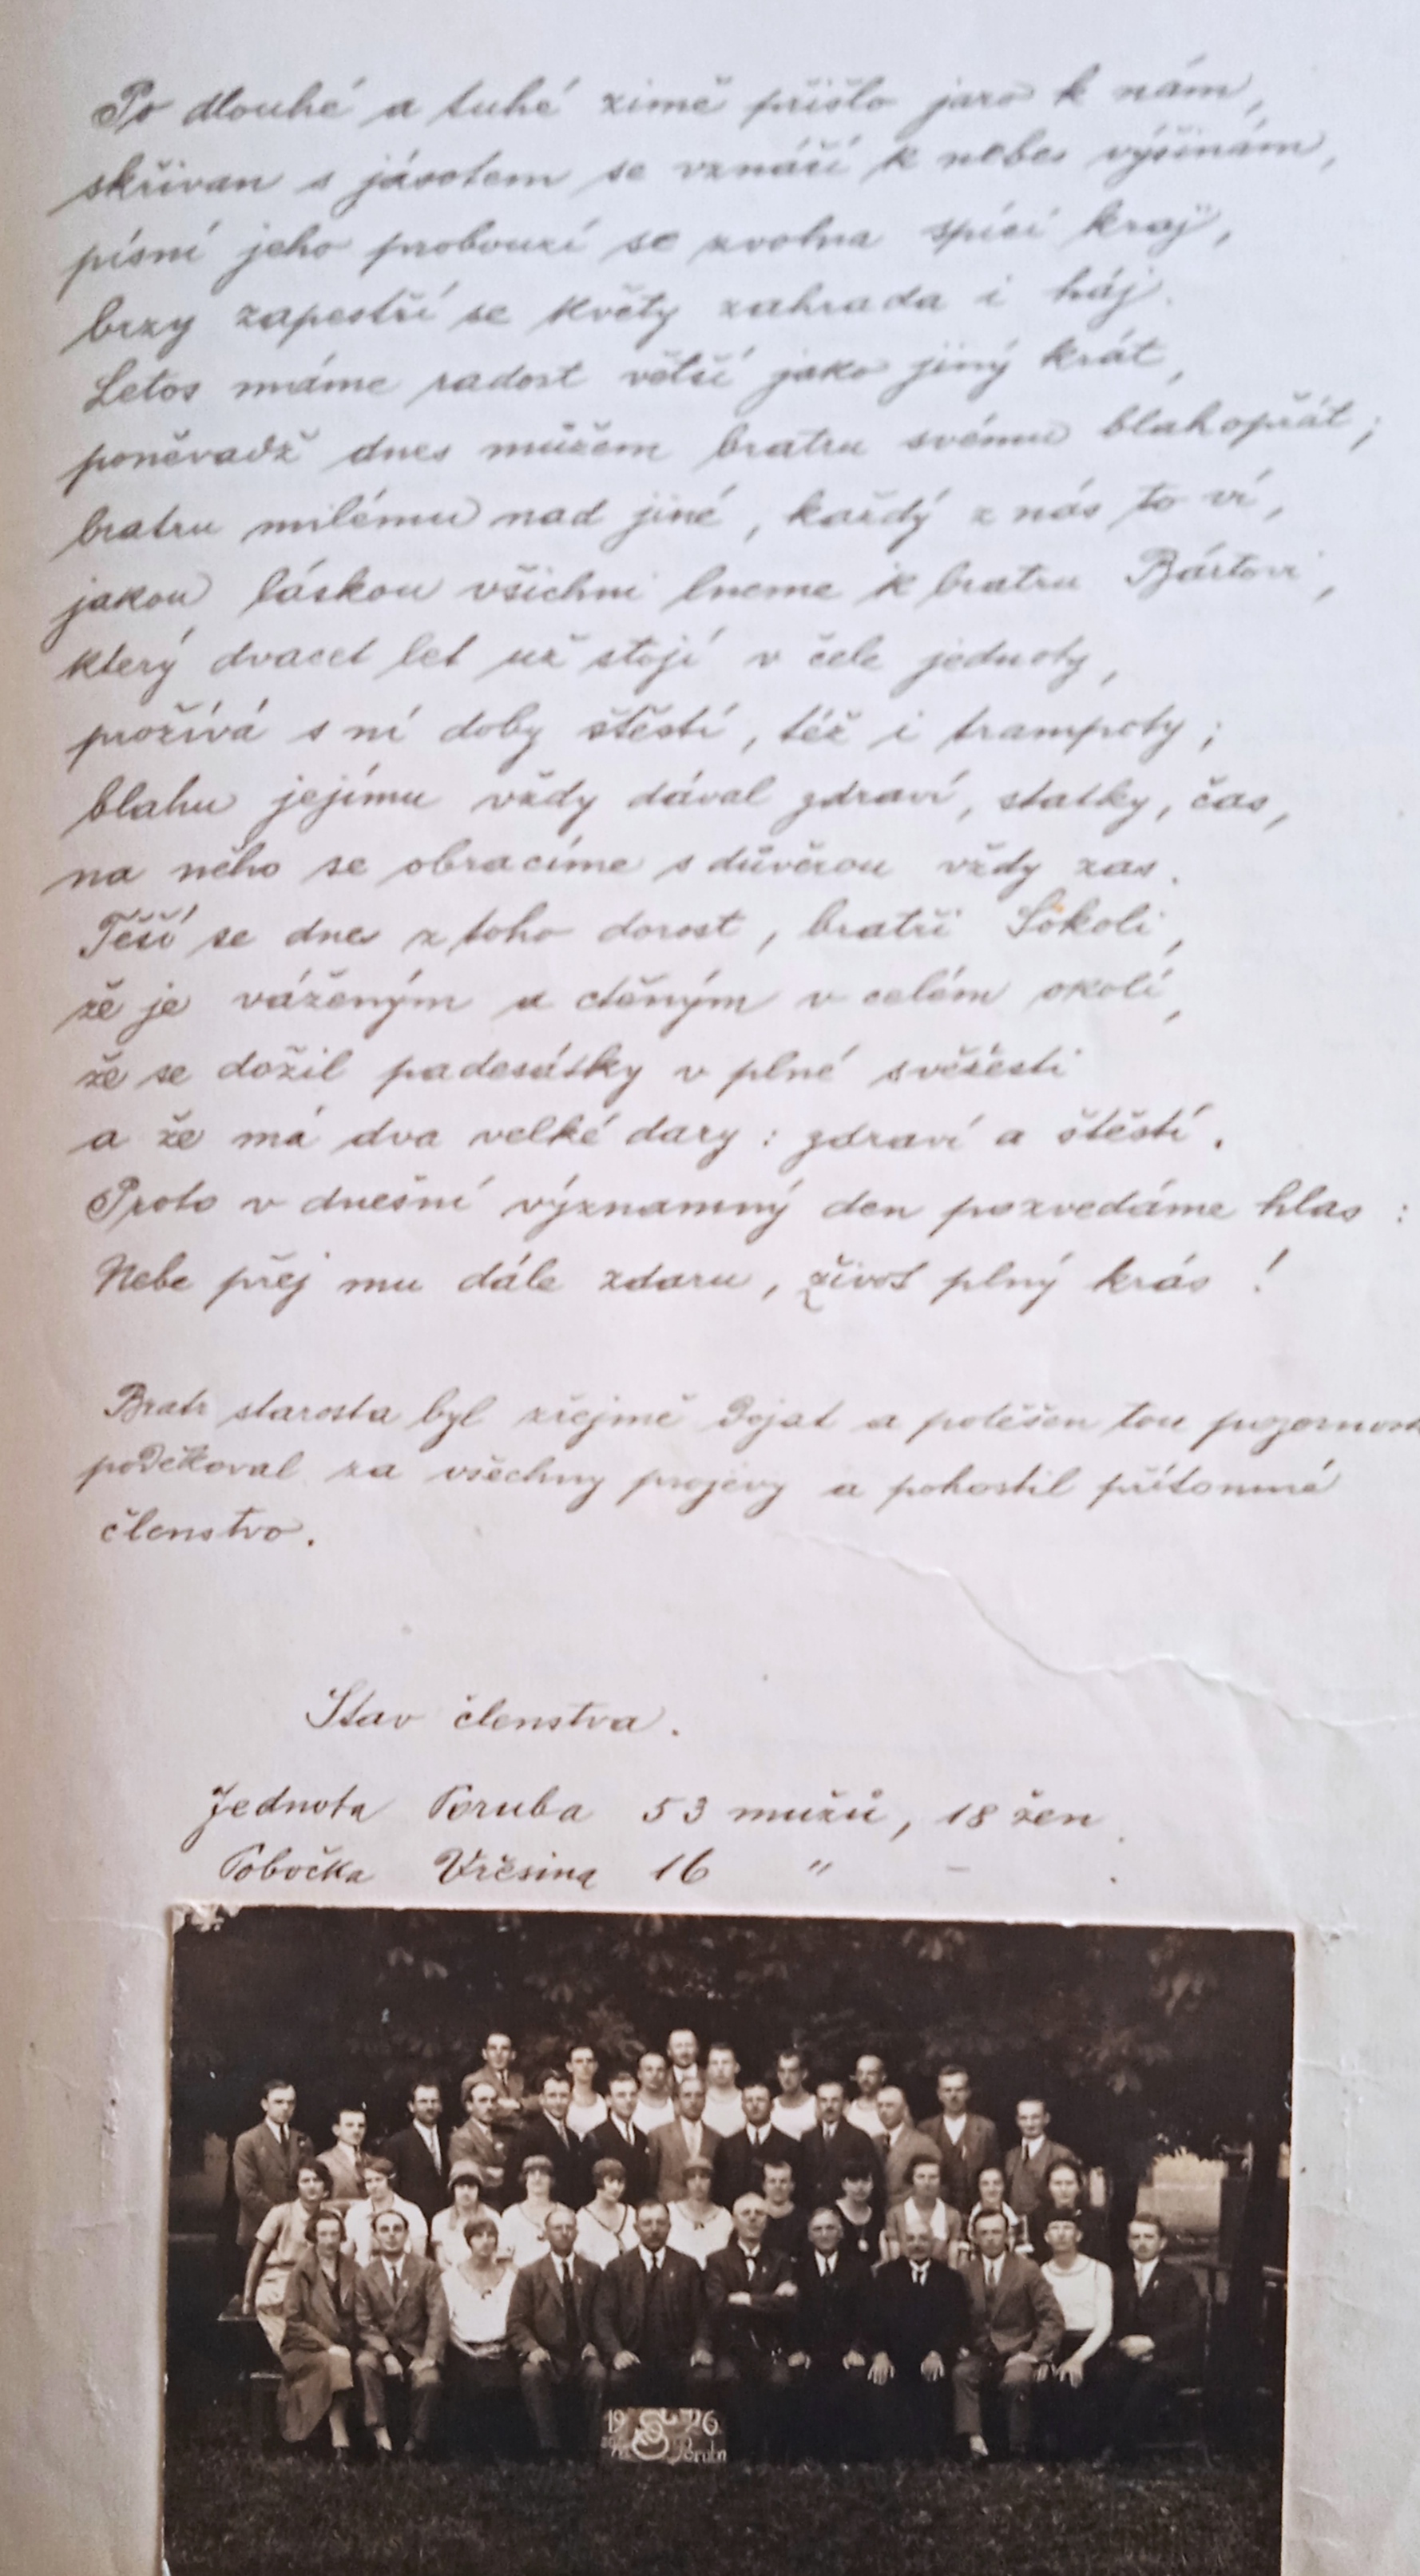 Po dlouhé a tuhé zimě přišlo jaro k nám,
skřivan s jásotem se vznáší k nebes výšinám,
písní jeho probouzí se zvolna spící kraj,
brzy zapestří se květy zahrada i háj.
Letos máme radost větší jako jiný krát,
poněvadž dnes můžem bratru svému blahopřát;
bratru milému nad jiné, každý z nás to ví,
jakou láskou všichni lneme k bratru Bártovi,
který dvacet let už stojí v čele jednoty,
prožívá s ní doby štěstí, též i trampoty;
blahu jejímu vždy dával zdraví, statky, čas,
na něho se obracíme s důvěrou vždy zas.
Těší se dnes z toho dorost, bratři Sokoli,
že je váženým a ctěným v celém okolí,
že se dožil padesátky v plné svěžesti
a že má dva velké dary: zdraví a štěstí.
Proto v dnešní významný den pozvedáme hlas:
Nebe přej mu dále zdaru, život plný krás!
Bratr starosta byl zřejmě dojat a potěšen tou
poděkoval za všechny projevy a pohostil přítomné
členstvo.
Stav členstva.
Jednota Poruba 53 mužů, 18 žen.
Pobočka Vřesina 16 " - .
19 26
Poruba